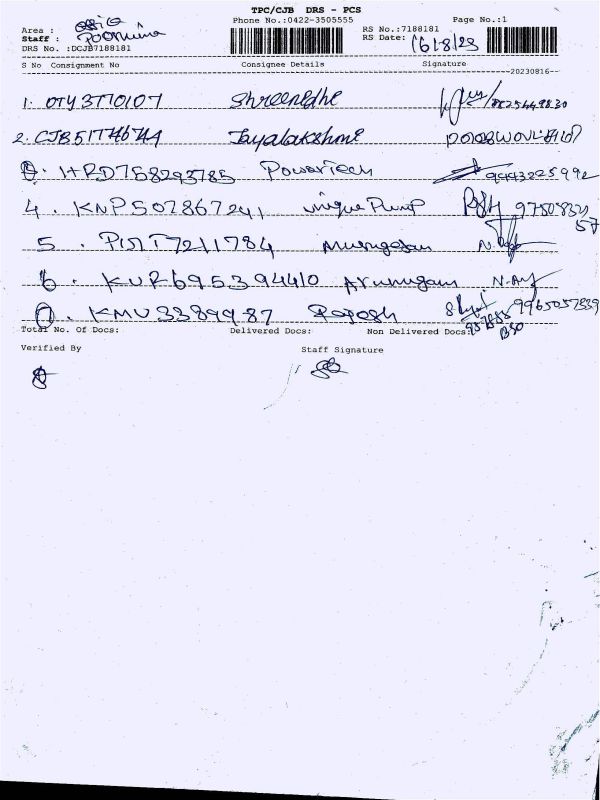 TPC/CJB DRS - PCS
Phone No.:0422-3505555 Page No.:1
Area : office
Staff : Poornima
DRS No. :DCJB7188181
RS No.:7188181
RS Date: 16/8/23
S No Consignment No Consignee Details Signature
20230816
1. OTY3770107 Shreenedhe
2. CJB517746744 Jayalakshmi
3. HRD758293785 PowerTech 9443225992
4. KNP502867241 unique Pump 9750833457
5. PINT7211784 Murugesan
6. KUR695394410 Arumugam
7. KMU3389987 Rajesh 9965057839
Total No. Of Docs: Delivered Docs: Non Delivered Docs:
Verified By Staff Signature